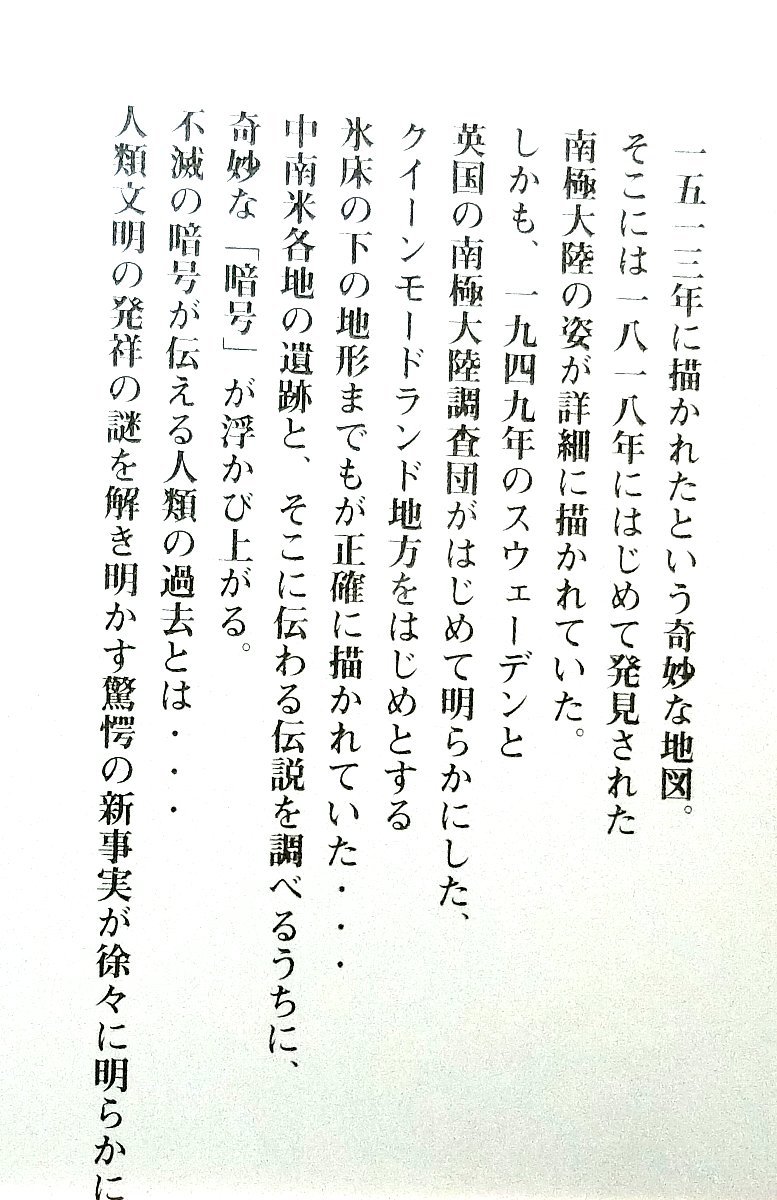 一五一三年に描かれたという奇妙な地図。
そこには一八一八年にはじめて発見された
南極大陸の姿が詳細に描かれていた。
しかも、一九四九年のスウェーデンと
英国の南極大陸調査団がはじめて明らかにした、
クイーンモードランド地方をはじめとする
氷床の下の地形までもが正確に描かれていた・・・
中南米各地の遺跡と、そこに伝わる伝説を調べるうちに、
奇妙な「暗号」が浮かび上がる。
不滅の暗号が伝える人類の過去とは・・・
人類文明の発祥の謎を解き明かす驚愕の新事実が徐々に明らかに